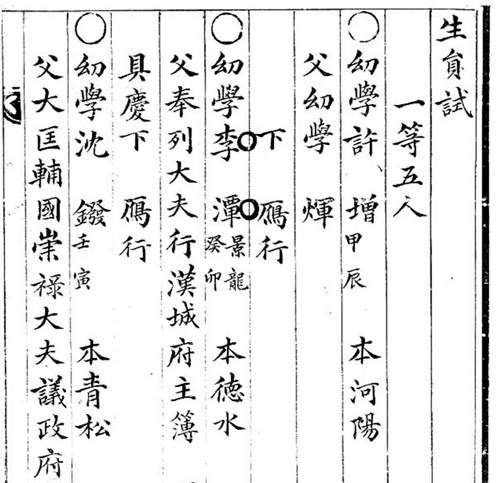 生員試
一等五人
○幼學許 增 甲辰 本河陽
父幼學 煇
下 鴈行
○幼學李 潭 景龍 癸卯 本德水
父奉列大夫行漢城府主簿
具慶下 鴈行
○幼學沈 鏺 壬寅 本青松
父大匡輔國崇祿大夫議政府